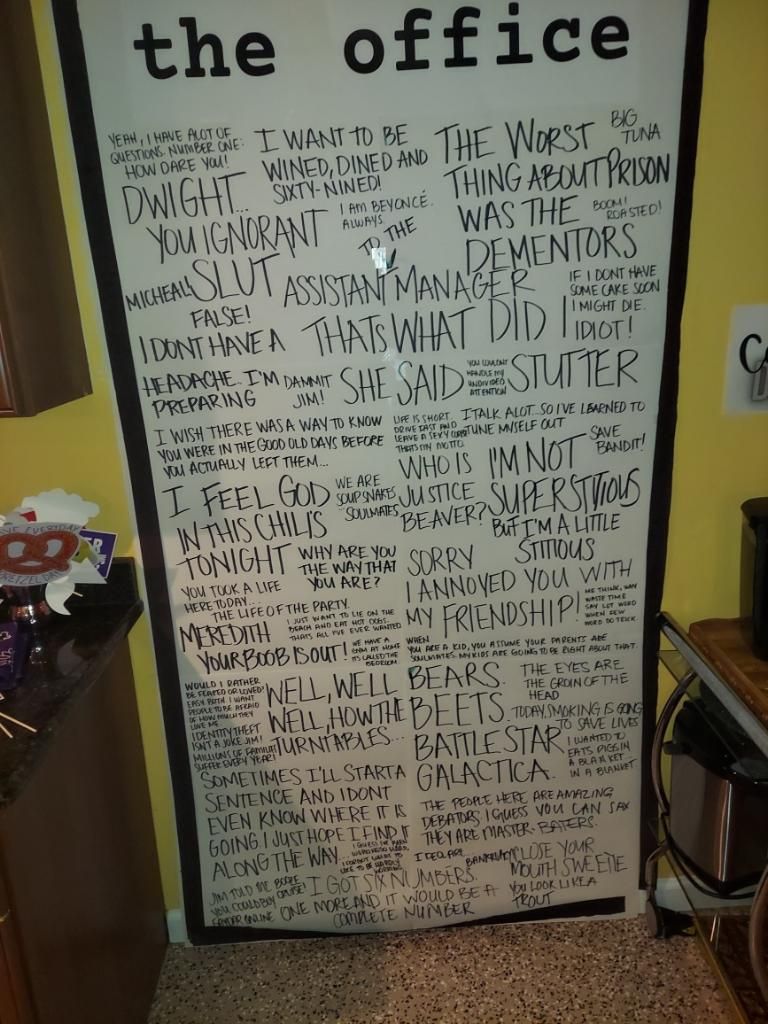 the office
YEAH, I HAVE ALOT OF
QUESTIONS. NUMBER ONE:
HOW DARE YOU!
I WANT TO BE
WINED, DINED AND
SIXTY-NINED!
THE WORST
THING ABOUT PRISON
WAS THE
DEMENTORS
BIG
TUNA
DWIGHT...
YOU IGNORANT
SLUT
I AM BEYONCÉ.
ALWAYS.
BOOM!
ROASTED!
MICHEAL!
FALSE!
I DONT HAVE A
HEADACHE.. I'M
PREPARING
TO THE
ASSISTANT MANAGER
IF I DONT HAVE
SOME CAKE SOON
I MIGHT DIE.
THATS WHAT
SHE SAID
DID I
STUTTER
IDIOT!
DAMMIT
JIM!
YOU COULDN'T
HANDLE MY
UNDIVIDED
ATTENTION
I WISH THERE WAS A WAY TO KNOW
YOU WERE IN THE GOOD OLD DAYS BEFORE
YOU ACTUALLY LEFT THEM...
LIFE IS SHORT.
DRIVE FAST AND
LEAVE A SEXY CORPSE
THATS MY MOTTO.
I TALK ALOT...SO I'VE LEARNED TO
TUNE MYSELF OUT
SAVE
BANDIT!
I FEEL GOD
IN THIS CHILI'S
TONIGHT
WE ARE
SOUPSNAKES
...SOULMATES
WHO IS
JUSTICE
BEAVER?
I'M NOT
SUPERSTITIOUS
BUT I'M A LITTLE
STITIOUS
WHY ARE YOU
THE WAY THAT
YOU ARE?
SORRY
I ANNOYED YOU WITH
MY FRIENDSHIP!
YOU TOOK A LIFE
HERE TODAY...
THE LIFE OF THE PARTY.
ME THINK, WHY
WASTE TIME
SAY LOT WORD
WHEN FEW
WORD DO TRICK
MEREDITH
YOUR BOOB IS OUT!
I JUST WANT TO LIE ON THE
BEACH AND EAT HOT DOGS.
THATS ALL I'VE EVER WANTED
WE HAVE A
GYM AT HOME
ITS CALLED THE
BEDROOM
WHEN
YOU ARE A KID, YOU ASSUME YOUR PARENTS ARE
SOULMATES. MY KIDS ARE GOING TO BE RIGHT ABOUT THAT.
WOULD I RATHER
BE FEARED OR LOVED?
EASY. BOTH. I WANT
PEOPLE TO BE AFRAID
OF HOW MUCH THEY
LOVE ME.
WELL, WELL
WELL, HOW THE
TURNTABLES...
BEARS.
BEETS.
BATTLESTAR
GALACTICA.
THE EYES ARE
THE GROIN OF THE
HEAD
TODAY, SMOKING IS GOING
TO SAVE LIVES
IDENTITY THEFT
ISN'T A JOKE JIM!
MILLIONS OF FAMILIES
SUFFER EVERY YEAR!
I WANTED TO
EATS PIGS IN
A BLANKET
IN A BLANKET.
SOMETIMES I'LL START A
SENTENCE AND I DONT
EVEN KNOW WHERE IT IS
GOING. I JUST HOPE I FIND IT
ALONG THE WAY...
THE PEOPLE HERE ARE AMAZING
DEBATORS. I GUESS YOU CAN SAY
THEY ARE MASTER-BATERS.
I DECLARE
BANKRUPTCY
CLOSE YOUR
MOUTH SWEETIE
YOU LOOK LIKE A
TROUT
JIM TOLD ME
YOU COULD BUY
ONLINE
BOOZE
CRUISE!
I GOT SIX NUMBERS.
ONE MORE AND IT WOULD BE A
COMPLETE NUMBER